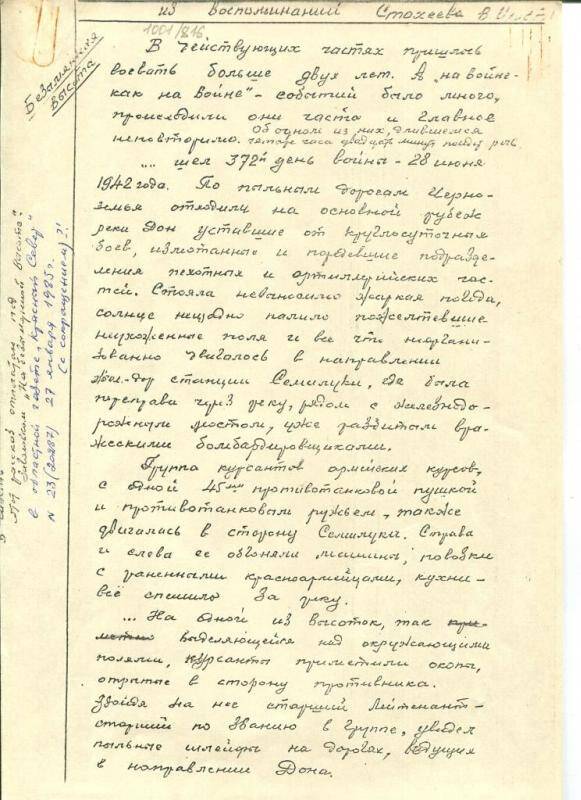 из воспоминаний Стахеева В.
1001/816
Безымянная
высота
В действующих частях пришлось
воевать больше двух лет. А на войне -
как на войне" - событий было много,
происходили они часто и главное
неповторимо. Об одном из них, длившемся
четыре часа двадцать минут пойдёт речь.
„... шел 372й день войны - 28 июня
1942 года. По пыльным дорогам Черно-
земья отходили на основной рубеж
реки Дон уставшие от круглосуточных
боев, измотанные и поредевшие подразде-
ления пехотных и артиллерийских час-
тей. Стояла невыносимо жаркая погода,
солнце нещадно палило пожелтевшие
неухоженные поля и все что неоргани-
зованно двигалось в направлении
жел-дор станции Семилуки, где была
переправа через реку, рядом с железнодо-
рожным мостом, уже разбитым вра-
жескими бомбардировщиками.
Группа курсантов армейских курсов,
с одной 45мм противотанковой пушкой
и противотанковым ружьем, также
двигалась в сторону Семилуки. Справа
и слева ее обгоняли машины, повозки
с ранеными красноармейцами, кухни -
всё спешило за реку.
... На одной из высоток, так
выделяющейся над окружающими
полями, курсанты приметили окопы,
открытые в сторону противника.
Зайдя на нее старший лейтенант -
старший по званию в группе, увидел
пыльные шлейфы на дорогах, ведущих
в направлении Дона.
под
"На безымянной высоте"
в областной газете „Красный Север"
N 23 (20287) 27 января 1985г.
(с сокращением)?!